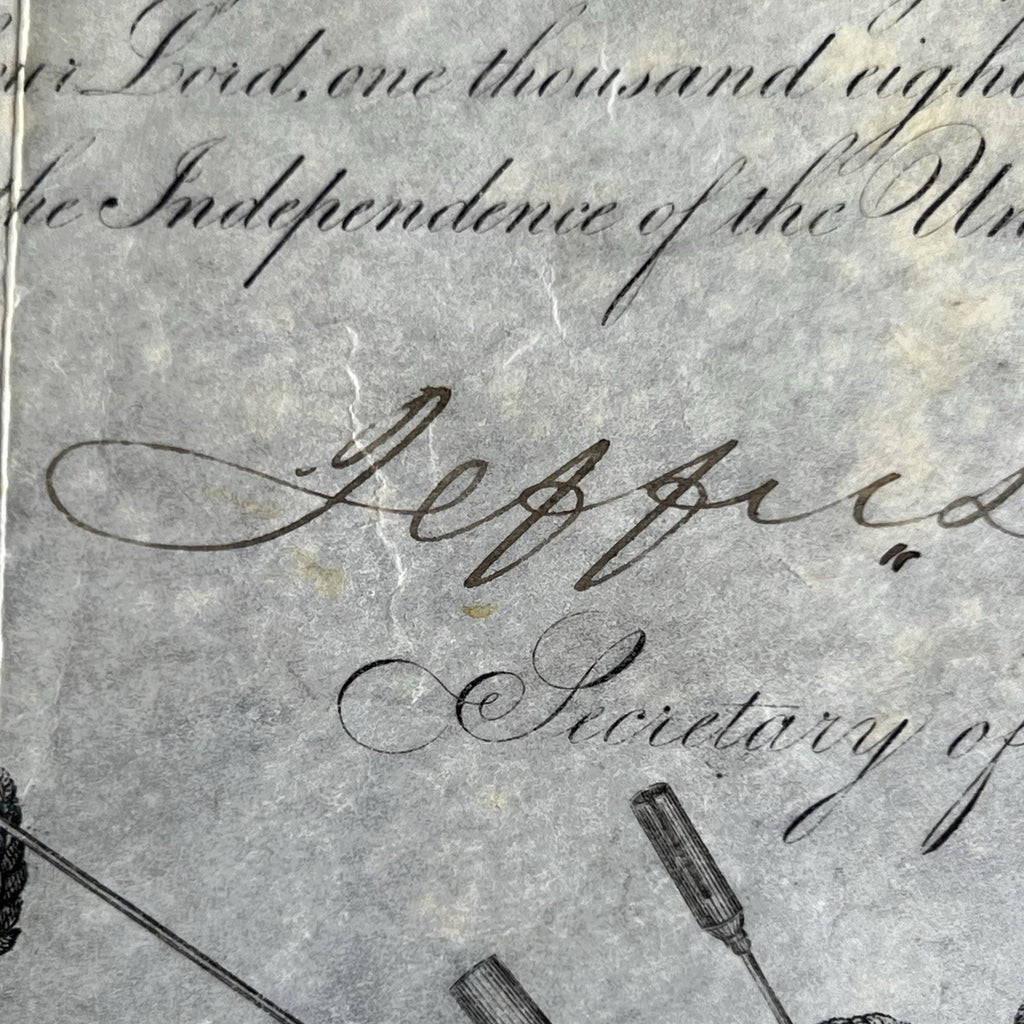 our Lord, one thousand eigh
the Independence of the Un
Jeffus
Secretary of